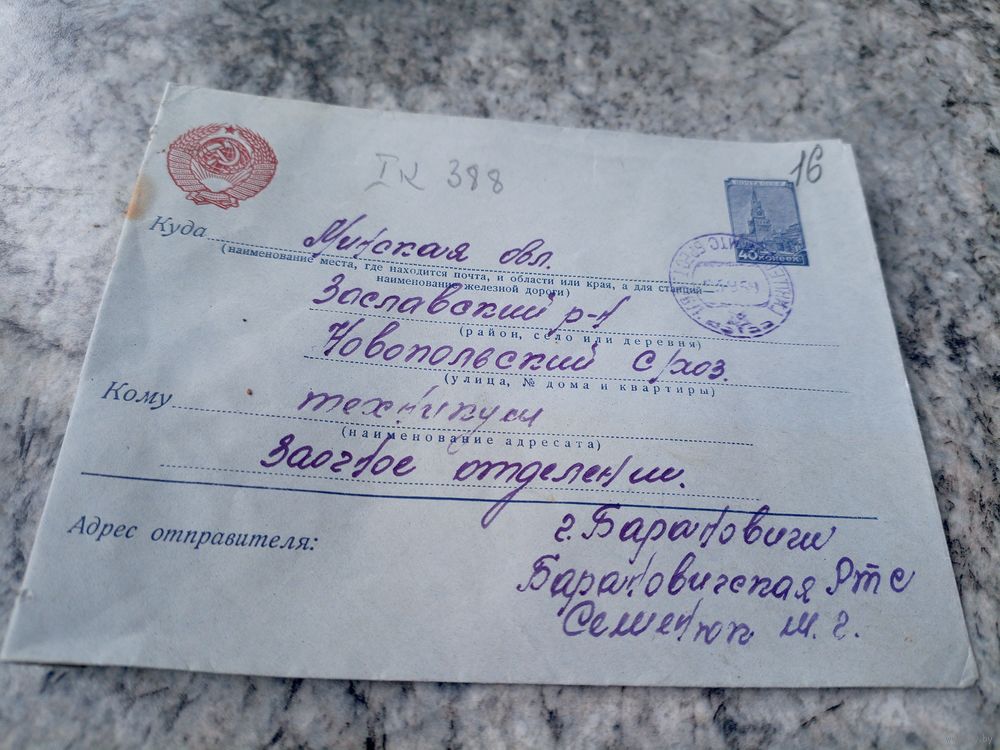 IК 388
16
ПОЧТА СССР
40 КОПЕЕК
Куда Минская обл.
(наименование места, где находится почта, и области или края, а для станций
наименование железной дороги)
Заславский р-н
(район, село или деревня)
Новопольский с/хоз.
(улица, № дома и квартиры)
Кому техникум
(наименование адресата)
Заочное отделение.
Адрес отправителя:
г. Барановичи
Барановичская Ртс
Семенюк